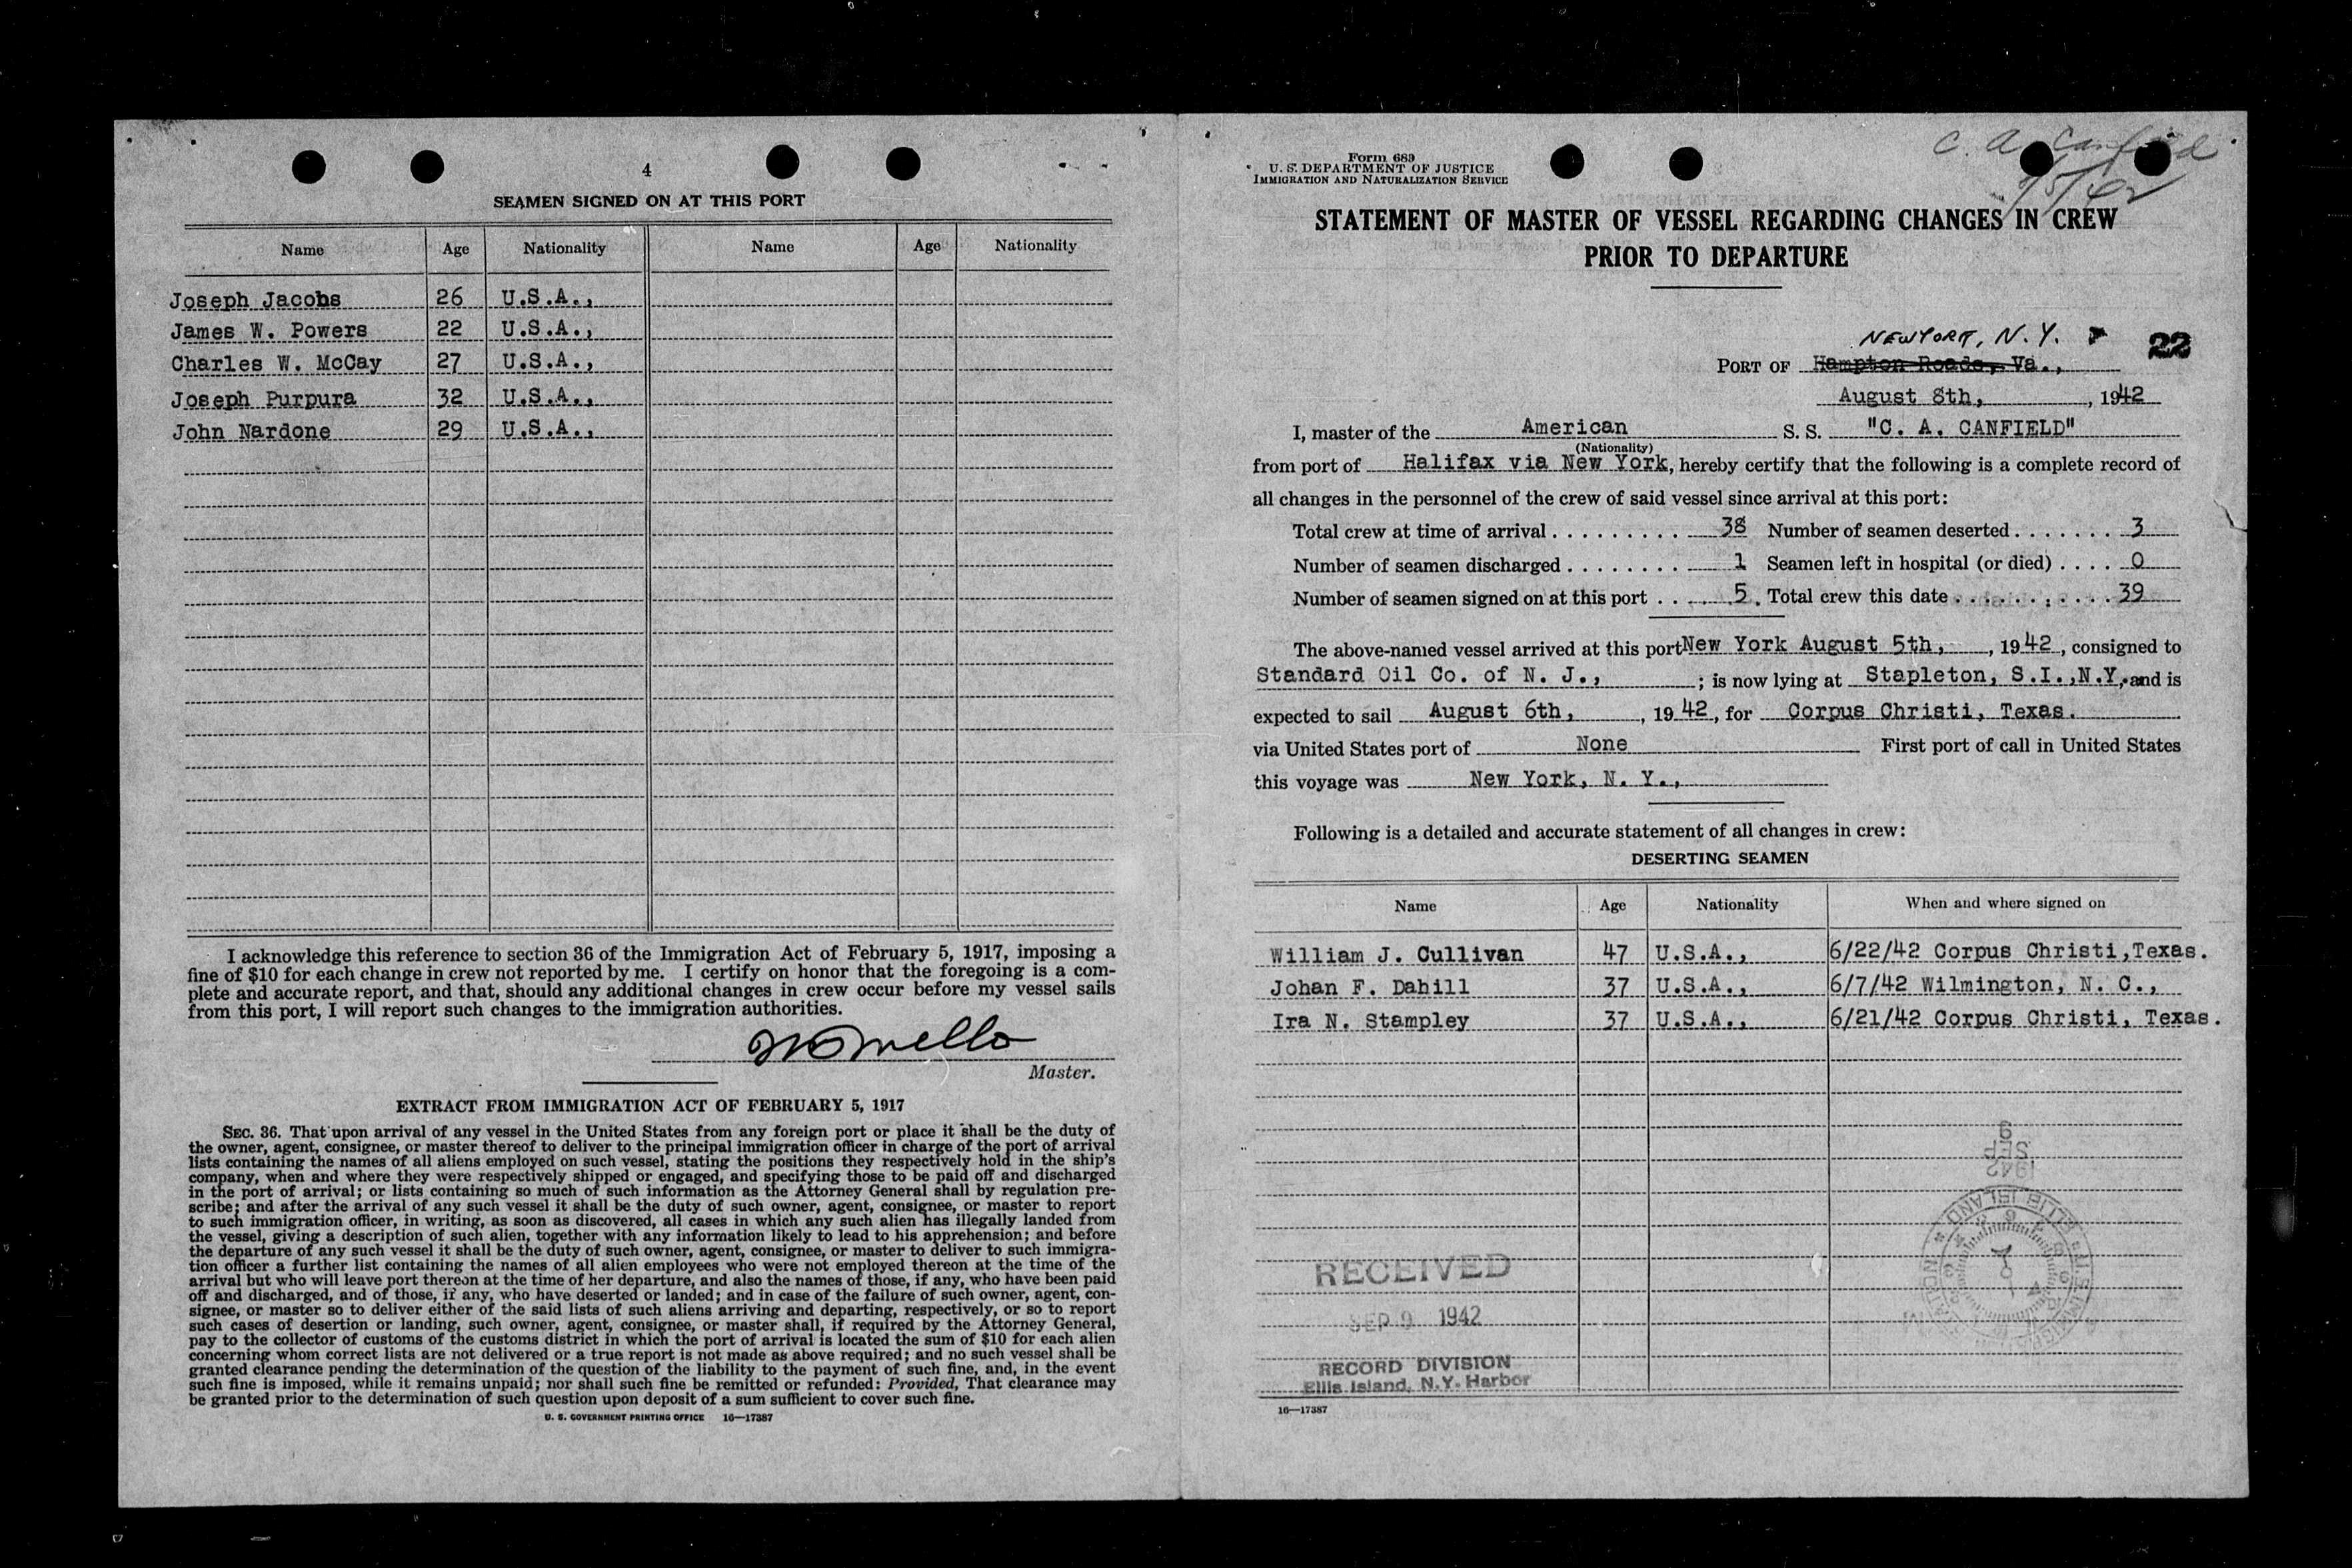 4
SEAMEN SIGNED ON AT THIS PORT
Name Age Nationality Name Age Nationality
Joseph Jacobs 26 U.S.A.,
James W. Powers 22 U.S.A.,
Charles W. McCay 27 U.S.A.,
Joseph Purpura 32 U.S.A.,
John Nardone 29 U.S.A.,
I acknowledge this reference to section 36 of the Immigration Act of February 5, 1917, imposing a
fine of $10 for each change in crew not reported by me. I certify on honor that the foregoing is a com-
plete and accurate report, and that, should any additional changes in crew occur before my vessel sails
from this port, I will report such changes to the immigration authorities.
Master.
EXTRACT FROM IMMIGRATION ACT OF FEBRUARY 5, 1917
SEC. 36. That upon arrival of any vessel in the United States from any foreign port or place it shall be the duty of
the owner, agent, consignee, or master thereof to deliver to the principal immigration officer in charge of the port of arrival
lists containing the names of all aliens employed on such vessel, stating the positions they respectively hold in the ship's
company, when and where they were respectively shipped or engaged, and specifying those to be paid off and discharged
in the port of arrival; or lists containing so much of such information as the Attorney General shall by regulation pre-
scribe; and after the arrival of any such vessel it shall be the duty of such owner, agent, consignee, or master to report
to such immigration officer, in writing, as soon as discovered, all cases in which any such alien has illegally landed from
the vessel, giving a description of such alien, together with any information likely to lead to his apprehension; and before
the departure of any such vessel it shall be the duty of such owner, agent, consignee, or master to deliver to such immigra-
tion officer a further list containing the names of all alien employees who were not employed thereon at the time of the
arrival but who will leave port thereon at the time of her departure, and also the names of those, if any, who have been paid
off and discharged, and of those, if any, who have deserted or landed; and in case of the failure of such owner, agent, con-
signee, or master so to deliver either of the said lists of such aliens arriving and departing, respectively, or so to report
such cases of desertion or landing, such owner, agent, consignee, or master shall, if required by the Attorney General,
pay to the collector of customs of the customs district in which the port of arrival is located the sum of $10 for each alien
concerning whom correct lists are not delivered or a true report is not made as above required; and no such vessel shall be
granted clearance pending the determination of the question of the liability to the payment of such fine, and, in the event
such fine is imposed, while it remains unpaid; nor shall such fine be remitted or refunded: Provided, That clearance may
be granted prior to the determination of such question upon deposit of a sum sufficient to cover such fine.
U. S. GOVERNMENT PRINTING OFFICE 16—17387
C. A. Canfield
Form 689
U. S. DEPARTMENT OF JUSTICE
IMMIGRATION AND NATURALIZATION SERVICE
STATEMENT OF MASTER OF VESSEL REGARDING CHANGES IN CREW
PRIOR TO DEPARTURE
NEW YORK, N. Y. 22
PORT OF Hampton Roads, Va.,
August 8th, , 1942
I, master of the American S. S. "C. A. CANFIELD"
(Nationality)
from port of Halifax via New York, hereby certify that the following is a complete record of
all changes in the personnel of the crew of said vessel since arrival at this port:
Total crew at time of arrival . . . . . . . . . 38 Number of seamen deserted . . . . . . . 3
Number of seamen discharged . . . . . . . . 1 Seamen left in hospital (or died) . . . . 0
Number of seamen signed on at this port . . . 5 Total crew this date . . . . . . . . . . 39
The above-named vessel arrived at this port New York August 5th, , 1942, consigned to
Standard Oil Co. of N. J., ; is now lying at Stapleton, S.I.,N.Y. and is
expected to sail August 6th, , 1942, for Corpus Christi, Texas.
via United States port of None First port of call in United States
this voyage was New York, N. Y.,
Following is a detailed and accurate statement of all changes in crew:
DESERTING SEAMEN
Name Age Nationality When and where signed on
William J. Cullivan 47 U.S.A., 6/22/42 Corpus Christi,Texas.
Johan F. Dahill 37 U.S.A., 6/7/42 Wilmington, N. C.,
Ira N. Stampley 37 U.S.A., 6/21/42 Corpus Christi, Texas.
1942
SEP
9
ELLIS ISLAND
RECEIVED
SEP 9 1942
RECORD DIVISION
Ellis Island, N.Y. Harbor
16—17387